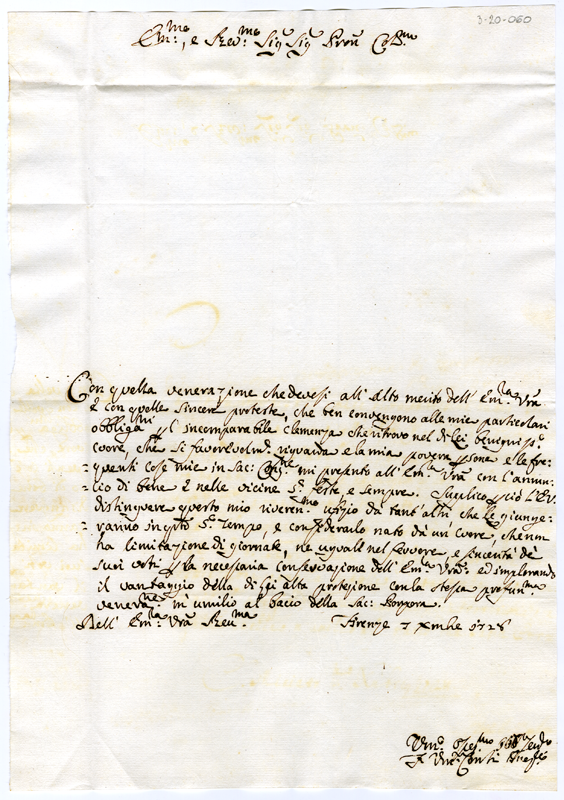 3-20-060
Em.mo, e Rev.mo Sig. Sig. Pron Col.mo
Con quella venerazione che devesi all' alto merito dell' Em.za Vra
e con quelle sincere proteste, che ben convengono alle mie particolari
obbligaz.ni p l' incomparabile clemenza che ritrovo nel di Lei benignis.o
cuore, che sì favorevolm.e riguarda e la mia povera psona e le fre-
-quenti cose mie in Sac: Cong.ne mi presento all' Em.a Vra con l' annun-
-zio di bene e nelle vicine S.e Feste, e sempre. Supplico pciò l' E.V.
distinguere questo mio riveren.mo ufizio da tant' altri che le giunge-
-ranno in qsto S.o Tempo, e considerarlo nato da un' Cuore, che non
ha limitazione di giornate, ne uguale nel fervore, e sincerità de'
suoi voti p la necessaria conservazione dell' Em.a Vra: ed implorando
il vantaggio della di Lei alta protezione con la stessa profun.ma
veneraz.ne m' umilio al bacio della Sac: Porpora.
Dell' Em.za Vra Rev.ma Firenze 7 Xmbe 1728
Um.o
F Vin. Conti